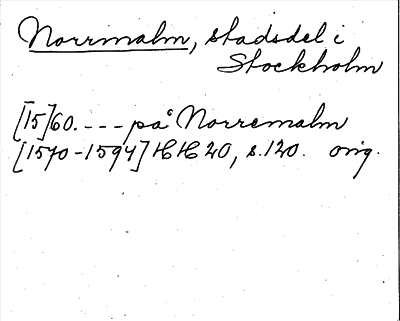 Norrmalm, stadsdel i
Stockholm
[15]60. --- på Norremalm
[1570-1594] HH 20, s. 120. orig.